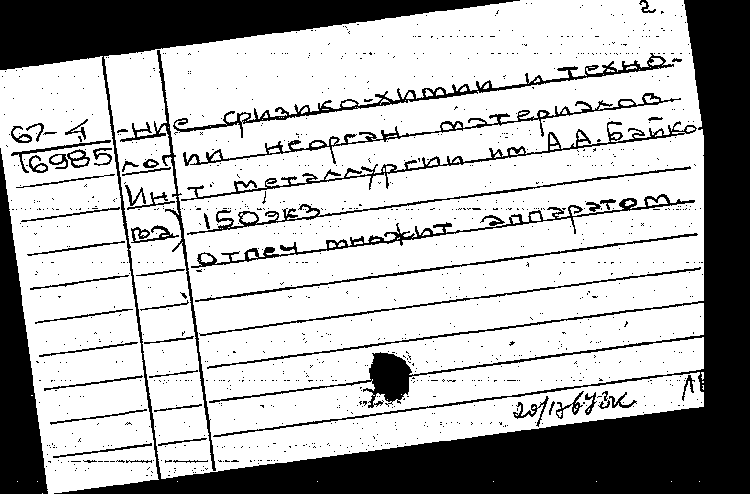 2.
67-4
16985
-ние физико-химии и техно-
логии неорган. материалов.
Ин-т металлургии им А.А.Байко-
ва) 150экз
отпеч множит аппаратом.